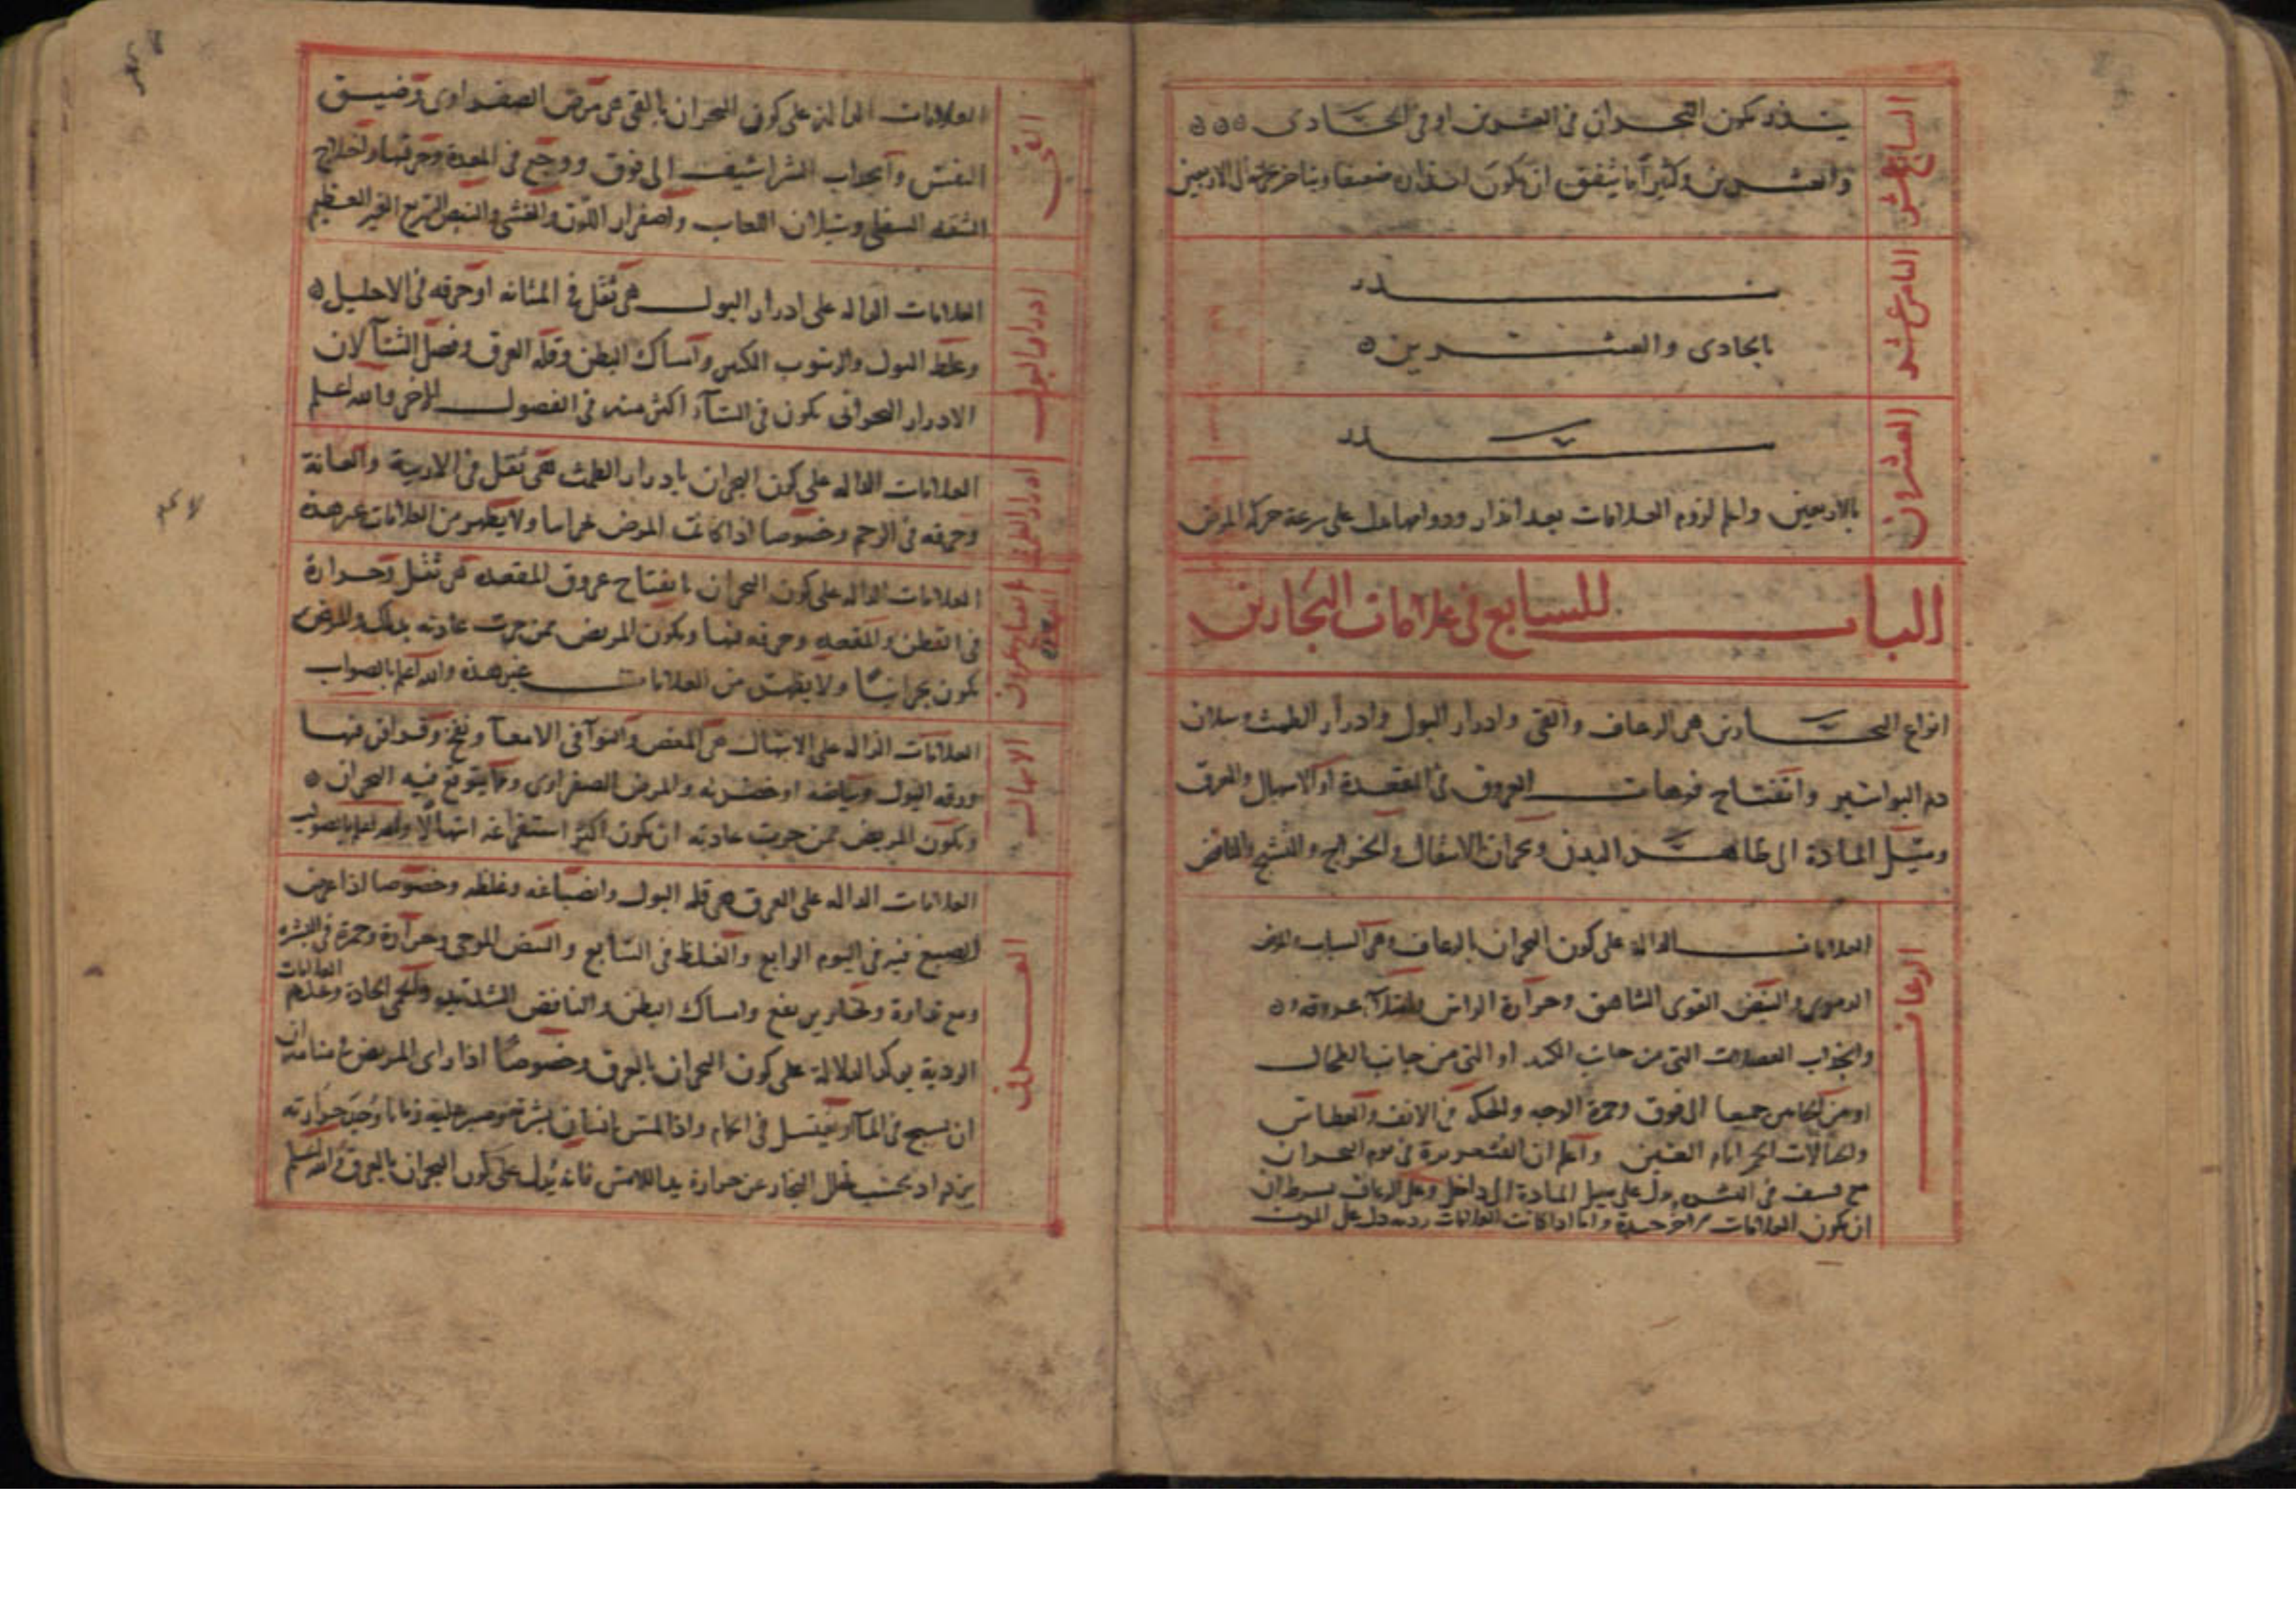 السابع عشر
ينذر بكون البحران في العشرين او في الحادي
والعشرين وكثيرا ما يتفق ان يكون انذاره ضعيفا ويتاخر بحرانه الى الاربعين
الثامن عشر
ينذر
بالحادي والعشرين
العشرون
ينذر
بالاربعين واعلم لزوم العلامات بعد انذار ودوامها يدل على سرعة حركة المرض
الباب السابع في علامات البحارين
انواع البحارين هي الرعاف والقي وادرار البول وادرار الطمث وسيلان
دم البواسير وانفتاح فوهات العروق في المقعدة او الاسهال والعرق
وميل المادة الى ظاهر البدن وبحران الانتقال والخراج والتشنج والنافض
الرعاف
العلامات الدالة على كون البحران بالرعاف وهي السبات والمرض
الدموي والنبض القوي الشاهق وحرارة الراس وامتلاء عروقه
وانجذاب العضلات التي من جانب الكبد او التي من جانب الطحال
او من الجانبين جميعا الى فوق وحمرة الوجه والحكة في الانف والعطاس
وخيالات الحمر امام العينين واعلم ان القشعريرة في يوم البحران
مع في البشرة يدل على ميل المادة الى داخل وعلى الرعاف بشرط ان
ان يكون العلامات جيدة واما اذا كانت العلامات ردية دل على الموت
القي
العلامات الدالة على كون البحران بالقي هي مرض الصفراوي وضيق
النفس وانجذاب الشراسيف الى فوق ووجع في المعدة وحرقتها واختلاج
الشفة السفلى وسيلان اللعاب واصفرار اللون والغشي والنبض السريع الغير العظيم
ادرار البول
العلامات الدالة على ادرار البول هي ثقل في المثانة او حرقة في الاحليل
وغلظ البول والرسوب الكثير وامساك البطن وقلة العرق وفصل الشتاء لان
الادرار البحراني يكون في الشتاء اكثر منه في الفصول الاخر والله اعلم
ادرار الطمث
العلامات الدالة على كون البحران بادرار الطمث هي ثقل في الاربية والعانة
وحرقة في الرحم وخصوصا اذا كانت المرض بحرانيا ولا يظهر من العلامات غير هذه
انفتاح عروق المقعدة
العلامات الدالة على كون البحران بانفتاح عروق المقعدة هي ثقل وحرارة
في القطن والمقعدة وحرقة فيها ويكون المريض ممن جرت عادته بذلك والمرض
يكون بحرانيا ولا يظهر من العلامات غير هذه والله اعلم بالصواب
الاسهال
العلامات الدالة على الاسهال هي المغص والتوا في الامعاء ونفخ وقراقر فيها
ورقة البول وبياضه او خضرته والمرض الصفراوي ومما يتوقع فيه البحران
ويكون المريض ممن جرت عادته ان يكون اكثر استفراغه اسهالا والله اعلم بالصواب
العرق
العلامات الدالة على العرق هي قلة البول وانصباغه وغلظه وخصوصا اذا عرض
الصبغ فيه في اليوم الرابع والغلظ في السابع والنبض الموجي وحرارة وحمرة في البشرة
ومع نداوة وامساك البطن والنافض الشديد والحمى الحادة وعدم العلامات
الردية يؤكد الدلالة على كون البحران بالعرق وخصوصا اذا راى المريض في منامه ان
ان يسبح في الماء او يغتسل في الحمام واذا لمس انسان بشرته وصبر عليه زمانا وجد حرارته
يزداد بحسب تخلل البخار عن حرارة يد اللامس فانه يدل على كون البحران بالعرق والله اعلم